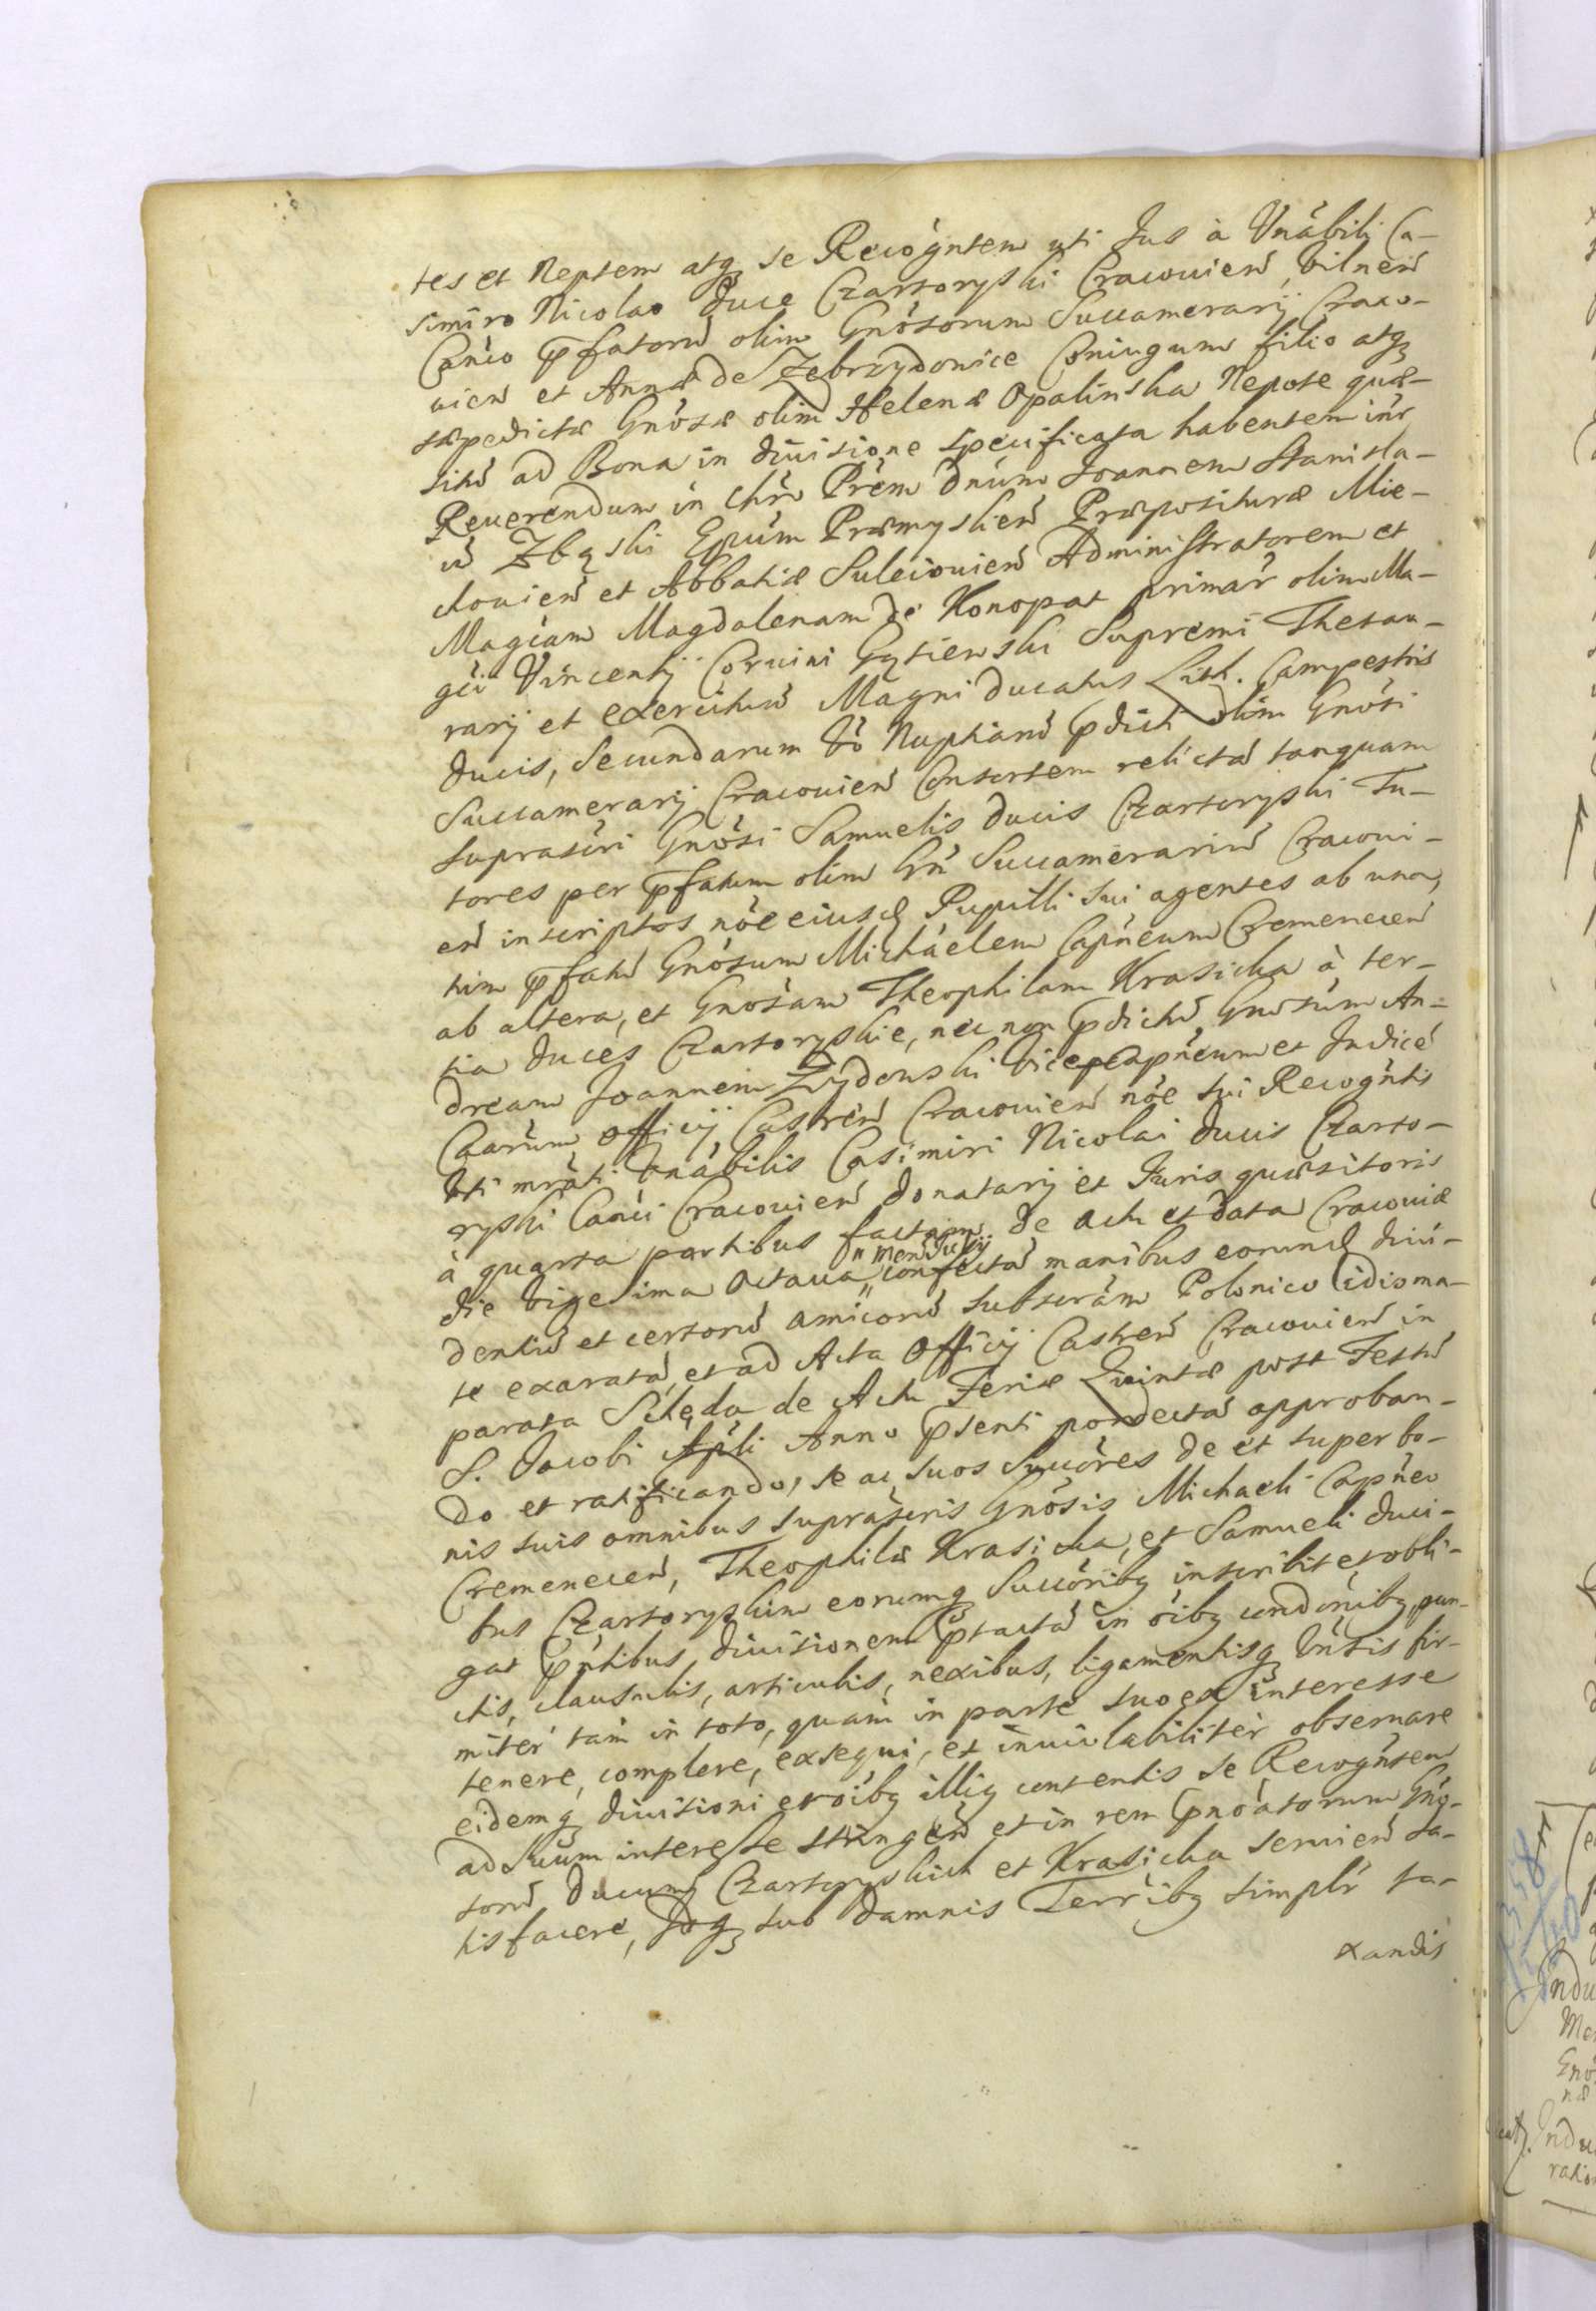 tes et Neptem atq₃ se Recogńtem uti Jus à Vnábili Ca-
simiro Nicolao Duce Czartoryski Cracouień, Vilneń
Cańco p̄fatorú olim Gnósorum Succamerarij Craco-
uień et Annæ de Zebrzydowice Coniugum filio atq₃
sæpedictæ Gnósæ olim Helenæ Opalinska Nepote quæ-
sitú ad Bona in diuisione specificata habentem inr̃
Reuerendum in Chrõ Prem Dnúm Joannem Stanisla-
ú Zbąski Epúm Præmyslień Præposituræ Mie-
chouień et Abbatiæ Suleiouień Administratorem et
Magćam Magdalenam de Konopat primar̃ olim Ma-
gći Vincentij Coruini Gąsiewski Supremi Thesau-
rarij et exercituú Magni Ducatus Lith. Campestris
Ducis, Secundarum Vó Nuptiarú p̄dicti olim Gnósi
Succamerarij Cracouień Consortem relictá tanquam
suprascri Gnósi Samuelis Ducis Czartoryski Tu-
tores per p̄fatum olim Gń Succamerariú Cracoui-
eń inscriptos nóe eiusd Pupilli sui agentes ab una,
tum p̄fatú Gnósum Michaelem Capńeum Cremeneceń
ab altera, et Gnósam Theophilam Krasicka à ter-
tia Duces Czartoryskie, nec non p̄dictú Gnósúm An-
dream Joannem Żydowski Vicecapńeum et Judicé
Caarúm Officij Castreń Cracouień nóe sui Recogńtis
Vti mráti Vnábilis Casimiri Nicolai Ducis Czarto-
ryski Cańci Cracouień donatarij et Juris quæsitoris
à quarta partibus factam de Actu et data Cracouiæ
die Vigesima Octaua " Mensis Julij " confectá manibus eorund diui-
dentiú et certorú amicorú subscrám Polonico idioma-
te exaratá et ad Acta Officij Castreń Cracouień in
parata Scheda de Actu Feriæ Quintæ post Festú
S. Jacobi Apli Anno p̄senti porrectá approban-
do et ratificando, se ac suos Succóres de et super bo-
nis suis omnibus suprascris Gnósis Michaeli Capńeo
Cremeneceń, Theophilæ Krasicka, et Samueli Duci-
bus Czartoryskim eorumq₃ Succóribq inscribit et obli-
gat p̄ntibus, diuisionem p̄tactá in óibq condónibq, pun-
ctis, clausulis, articulis, nexibus, ligamentisq₃ Vńsis fir-
miter tam in toto, quam in parte suo ex interesse
tenere, complere, exsequi, et inuiolabiliter obseruare
eidemq₃ diuisioni et óibq illiq contentis se Recogńtem
ad Suum interesse stringeń et in rem p̄noátorum Gnó-
sorú Ducum Czartoryskich et Krasicka seruień sa-
tisfacere, Idq₃ sub damnis Terr̃ibq simplr̃ ta-
xandis